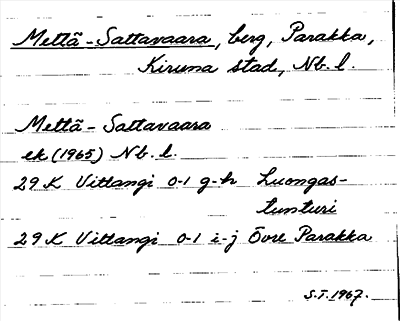 Mettä-Sattavaara, berg, Parakka,
Kiruna stad, Nb. l.
Mettä-Sattavaara
ek (1965) Nb. l.
29 K Vittangi 0-1 g-h Luongas-
tunturi
29 K Vittangi 0-1 i-j Övre Parakka
S.T. 1967.